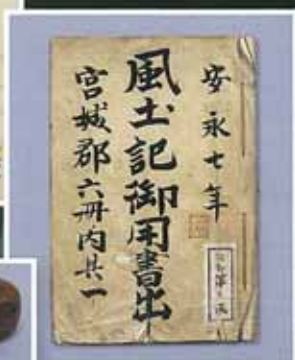 安永七年
風土記御用書出
宮城郡六冊内其一